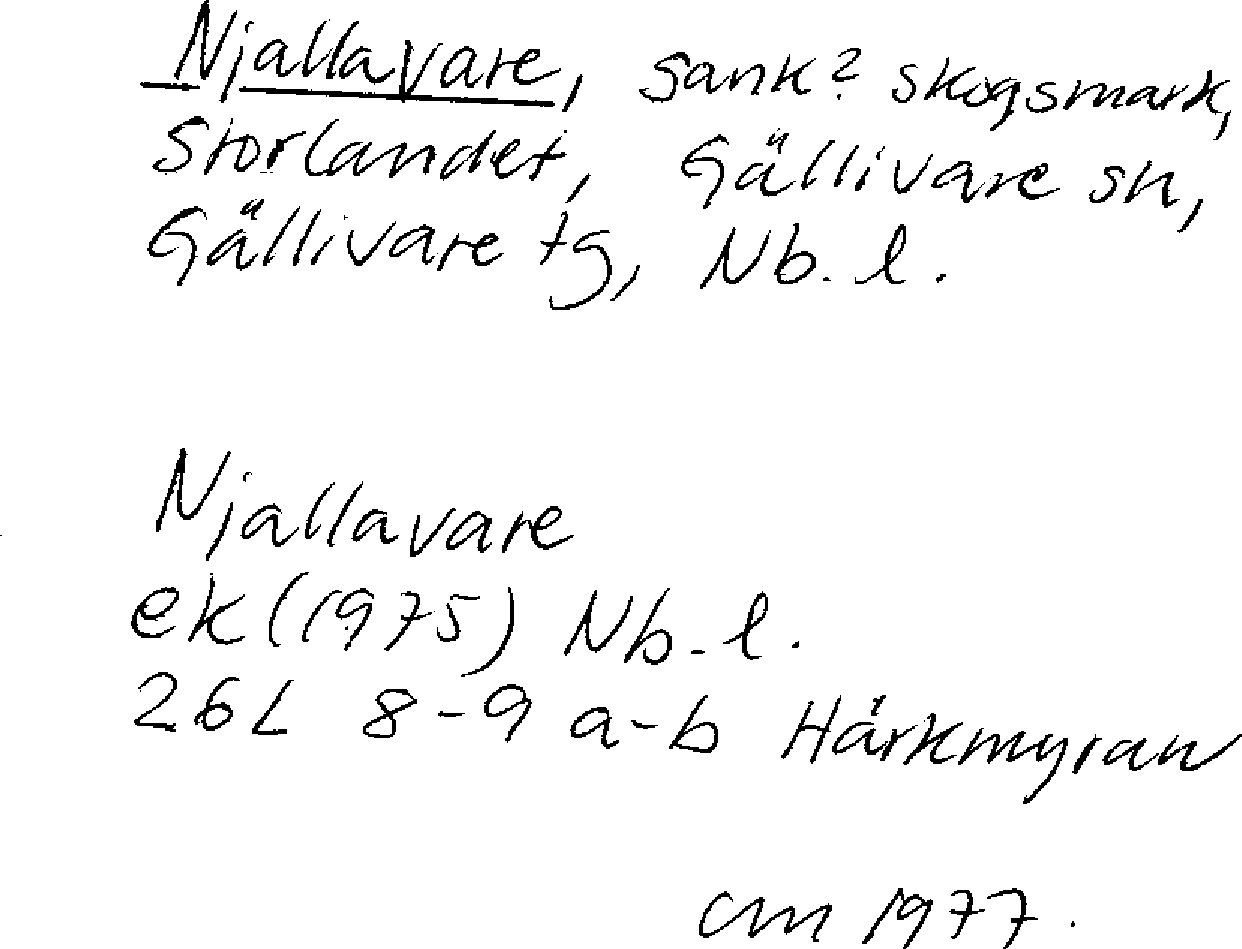 Njallavare, sank? skogsmark,
Storlandet, Gällivare sn,
Gällivare tg, Nb. l.
Njallavare
ek (1975) Nb. l.
26L 8-9 a-b Hårkmyran
cm 1977.